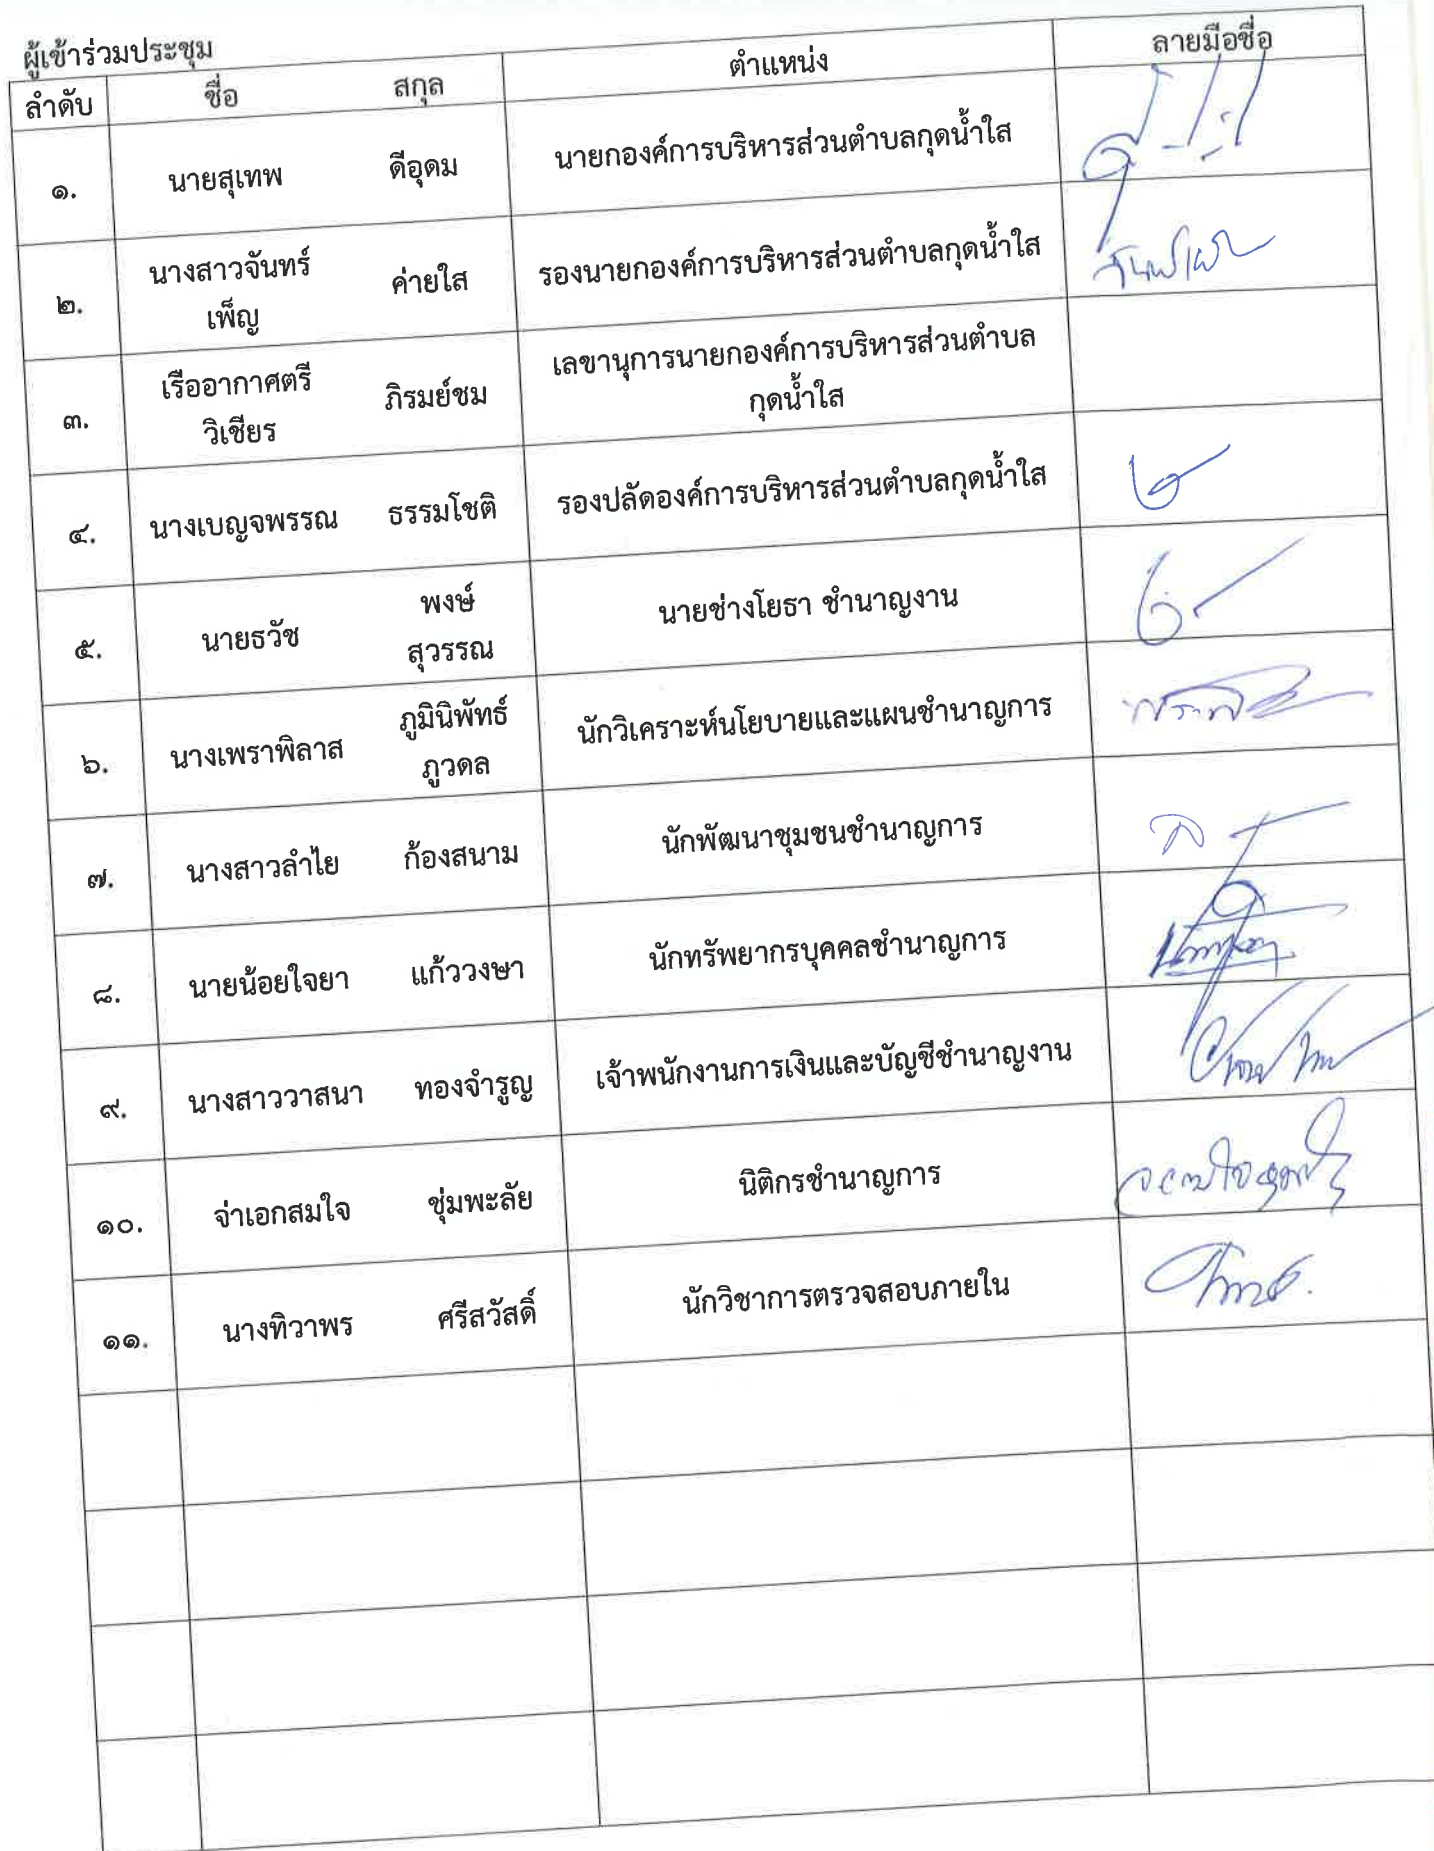 ผู้เข้าร่วมประชุม
ลำดับ ชื่อ สกุล ตำแหน่ง ลายมือชื่อ
๑. นายสุเทพ ดีอุดม นายกองค์การบริหารส่วนตำบลกุดน้ำใส
๒. นางสาวจันทร์ ค่ายใส รองนายกองค์การบริหารส่วนตำบลกุดน้ำใส
เพ็ญ
๓. เรืออากาศตรี ภิรมย์ชม เลขานุการนายกองค์การบริหารส่วนตำบล
วิเชียร กุดน้ำใส
๔. นางเบญจพรรณ ธรรมโชติ รองปลัดองค์การบริหารส่วนตำบลกุดน้ำใส
๕. นายธวัช พงษ์ นายช่างโยธา ชำนาญงาน
สุวรรณ
๖. นางเพราพิลาส ภูมินิพัทธ์ นักวิเคราะห์นโยบายและแผนชำนาญการ
ภูวดล
๗. นางสาวลำไย ก้องสนาม นักพัฒนาชุมชนชำนาญการ
๘. นายน้อยใจยา แก้ววงษา นักทรัพยากรบุคคลชำนาญการ
๙. นางสาววาสนา ทองจำรูญ เจ้าพนักงานการเงินและบัญชีชำนาญงาน
๑๐. จ่าเอกสมใจ ชุ่มพะลัย นิติกรชำนาญการ
๑๑. นางทิวาพร ศรีสวัสดิ์ นักวิชาการตรวจสอบภายใน